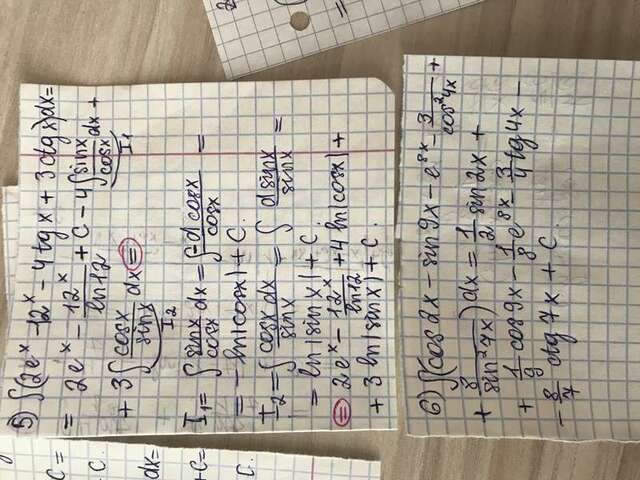 C =
C.
dx =
+C =
C.
5) ∫(2eˣ - 12ˣ - 4tgx + 3ctgx)dx =
= 2eˣ - 12ˣ/ln12 + C - 4∫ sinx/cosx dx +
I₁
+ 3∫ cosx/sinx dx ⊜
I₂
I₁ = ∫ sinx/cosx dx = ∫ -d cosx/cosx =
= - ln|cosx| + C.
I₂ = ∫ cosx dx/sinx = ∫ dsinx/sinx =
= ln|sinx| + C.
⊜ 2eˣ - 12ˣ/ln12 + 4 ln|cosx| +
+ 3 ln|sinx| + C.
6) ∫(cos2x - sin9x - e⁸ˣ - 3/cos²4x +
+ 8/sin²7x)dx = 1/2 sin2x +
+ 1/9 cos9x - 1/8 e⁸ˣ - 3/4 tg4x -
- 8/7 ctg7x + C.